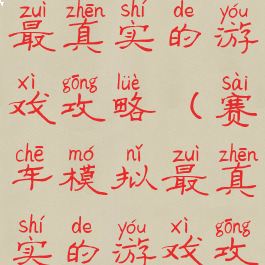 zuì zhēn shí de yóu
最真实的游
xì gōng lüè sài
戏攻略（赛
chē mó nǐ zuì zhēn
车模拟最真
shí de yóu xì gōng
实的游戏攻